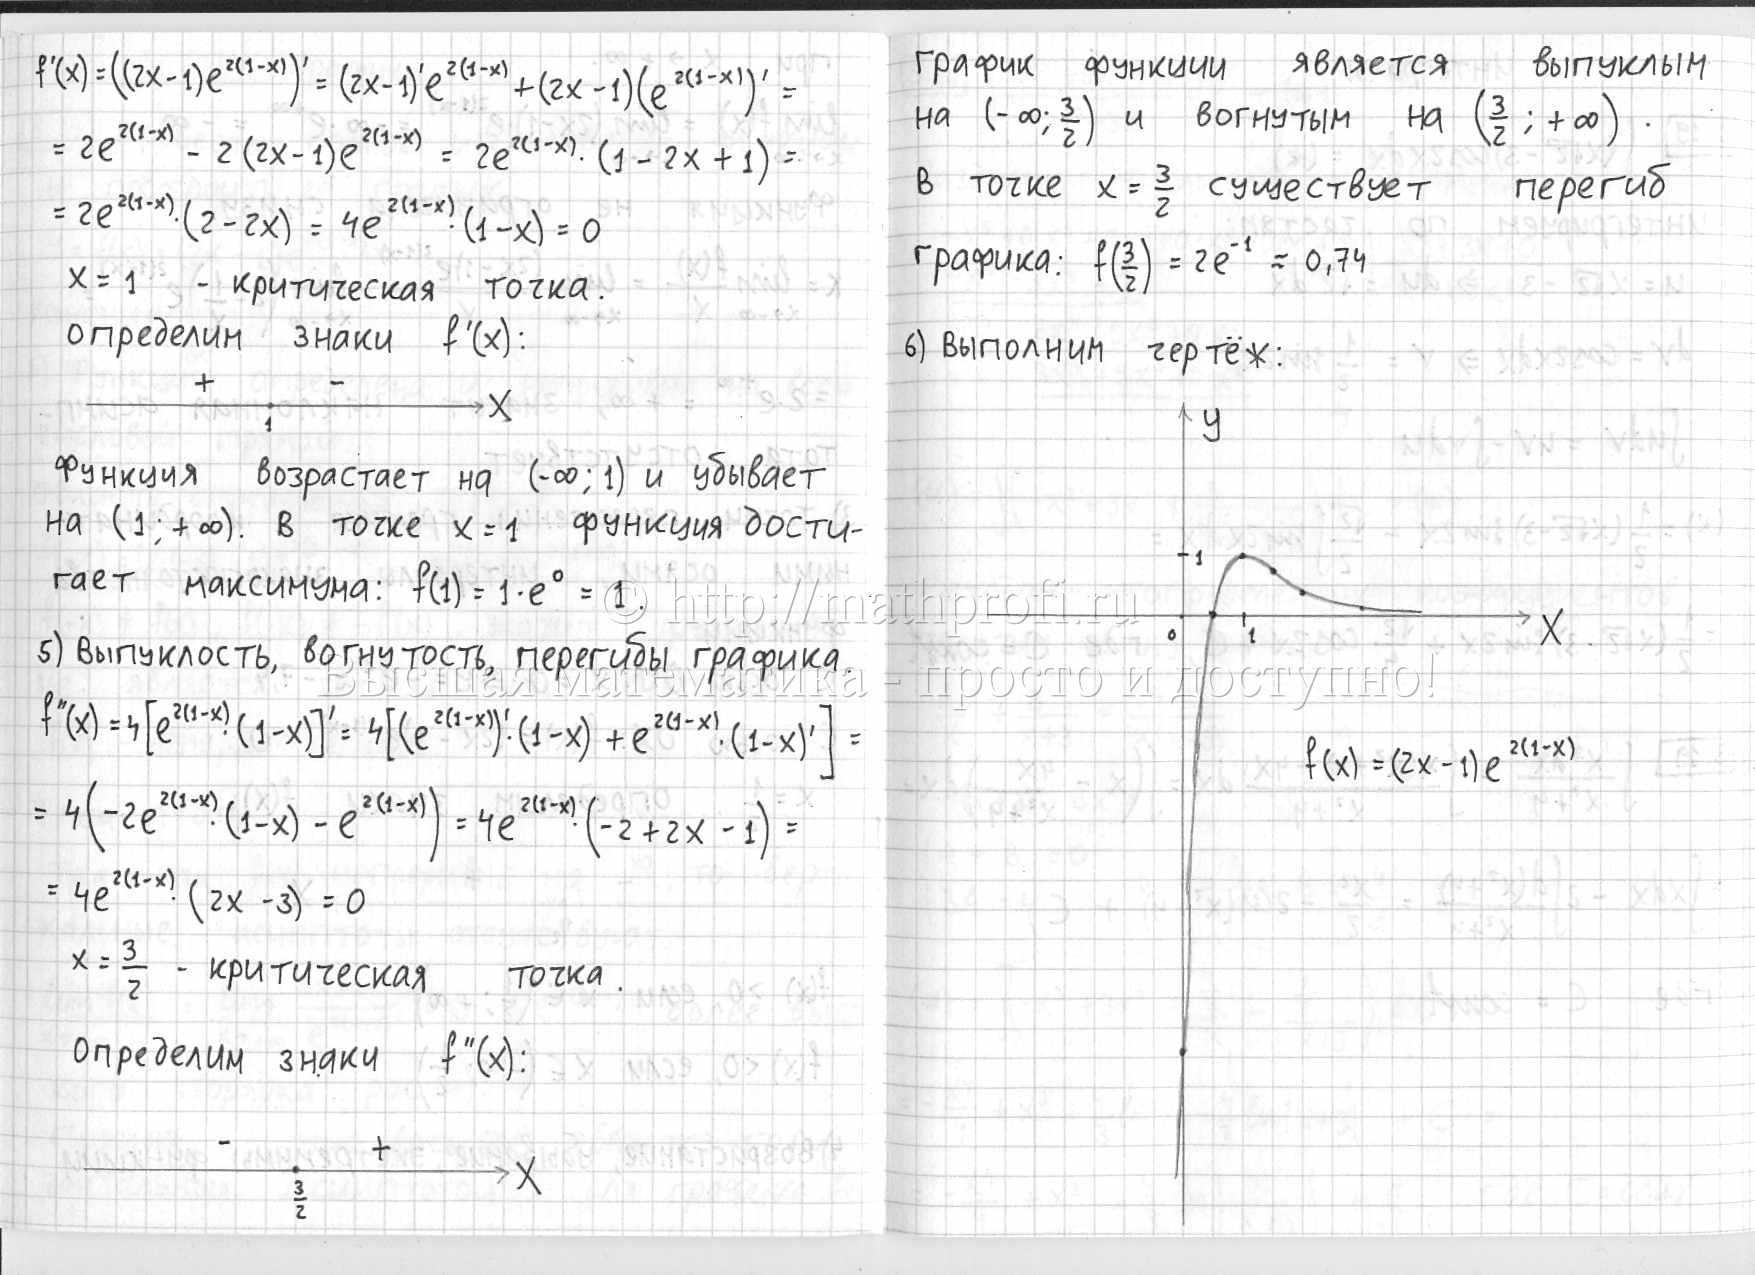 f'(x) = ((2x-1)e^{2(1-x)})' = (2x-1)'e^{2(1-x)} + (2x-1)(e^{2(1-x)})' =
= 2e^{2(1-x)} - 2(2x-1)e^{2(1-x)} = 2e^{2(1-x)}·(1-2x+1) =
= 2e^{2(1-x)}·(2-2x) = 4e^{2(1-x)}·(1-x) = 0
x = 1 - критическая точка.
Определим знаки f'(x):
+ -
1
X
Функция возрастает на (-∞; 1) и убывает
на (1; +∞). В точке x = 1 функция дости-
гает максимума: f(1) = 1·e^0 = 1.
5) Выпуклость, вогнутость, перегибы графика.
f''(x) = 4[e^{2(1-x)}·(1-x)]' = 4[(e^{2(1-x)})'·(1-x) + e^{2(1-x)}·(1-x)'] =
= 4(-2e^{2(1-x)}·(1-x) - e^{2(1-x)}) = 4e^{2(1-x)}·(-2+2x-1) =
= 4e^{2(1-x)}·(2x-3) = 0
x = 3/2 - критическая точка.
Определим знаки f''(x):
- +
3/2
X
График функции является выпуклым
на (-∞; 3/2) и вогнутым на (3/2; +∞).
В точке x = 3/2 существует перегиб
графика: f(3/2) = 2e^{-1} ≈ 0,74
6) Выполним чертёж:
y
1
0
1
X
f(x) = (2x-1)e^{2(1-x)}
© http://mathprofi.ru
Высшая математика - просто и доступно!